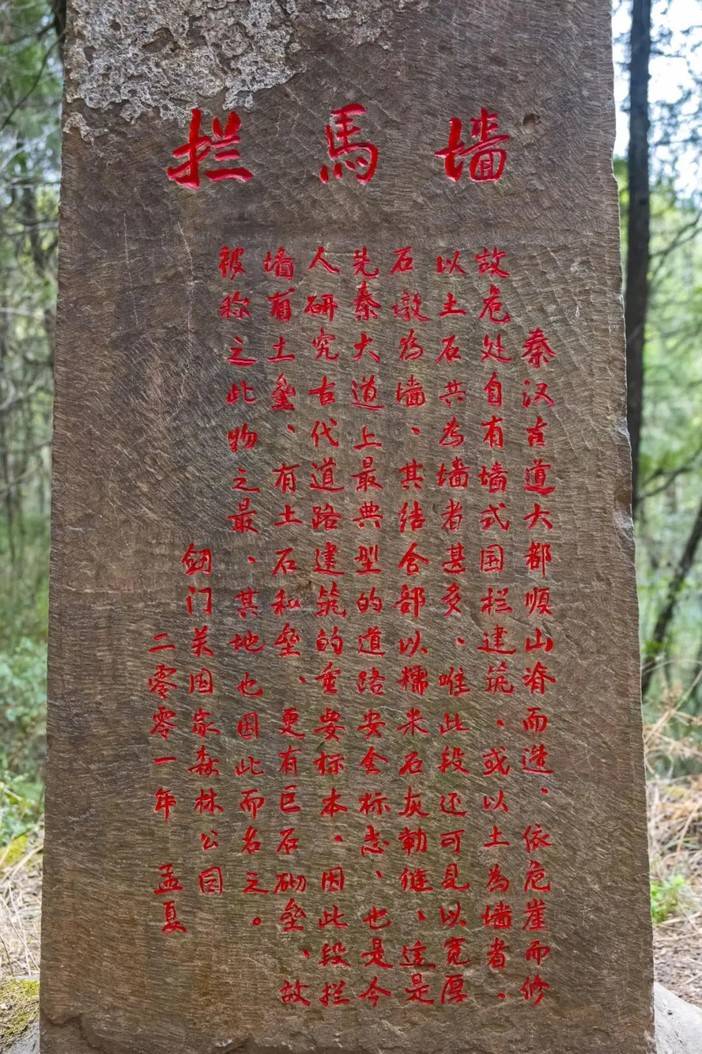 拦馬墙
秦汉古道大都顺山脊而造、依危崖而修
故危处自有墙式围栏建筑、或以土为墙者、
以土石共为墙者甚多、唯此段还可见以宽厚
石墩为墙、其结合部以糯米石灰勒缝、这是
先秦大道上最典型的道路安全标志、也是今
人研究古代道路建筑的重要标本、因此段拦
墙有土垒、有土石和垒、更有巨石砌垒、故
被称之此物之最、其地也因此而名之。
剑门关国家森林公园
二零零一年 孟夏